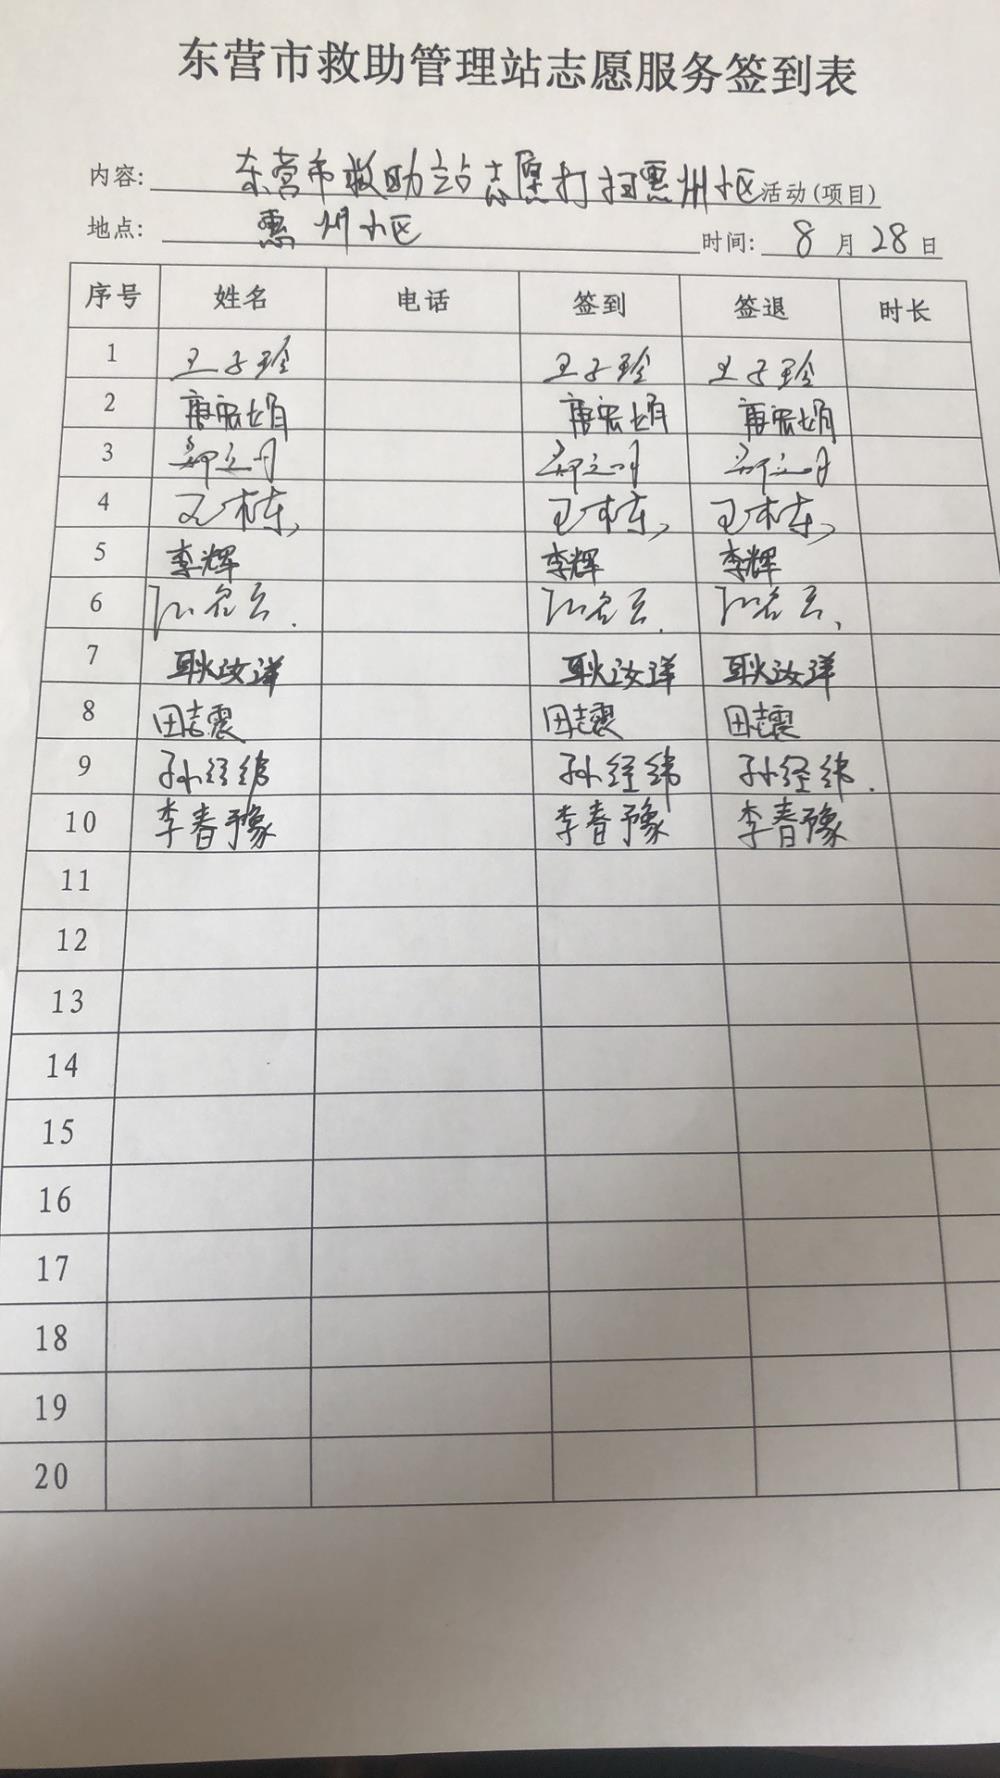 东营市救助管理站志愿服务签到表
内容: 东营市救助站志愿打扫惠州小区 活动(项目)
地点: 惠州小区 时间: 8月28日
序号 姓名 电话 签到 签退 时长
1 王子玲 王子玲 王子玲
2 唐宏娟 唐宏娟 唐宏娟
3
4 王木栋 王木栋 王木栋
5 李辉 李辉 李辉
6
7 耿汝洋 耿汝洋 耿汝洋
8 田志震 田志震 田志震
9 孙经纬 孙经纬 孙经纬
10 李春豫 李春豫 李春豫
11
12
13
14
15
16
17
18
19
20